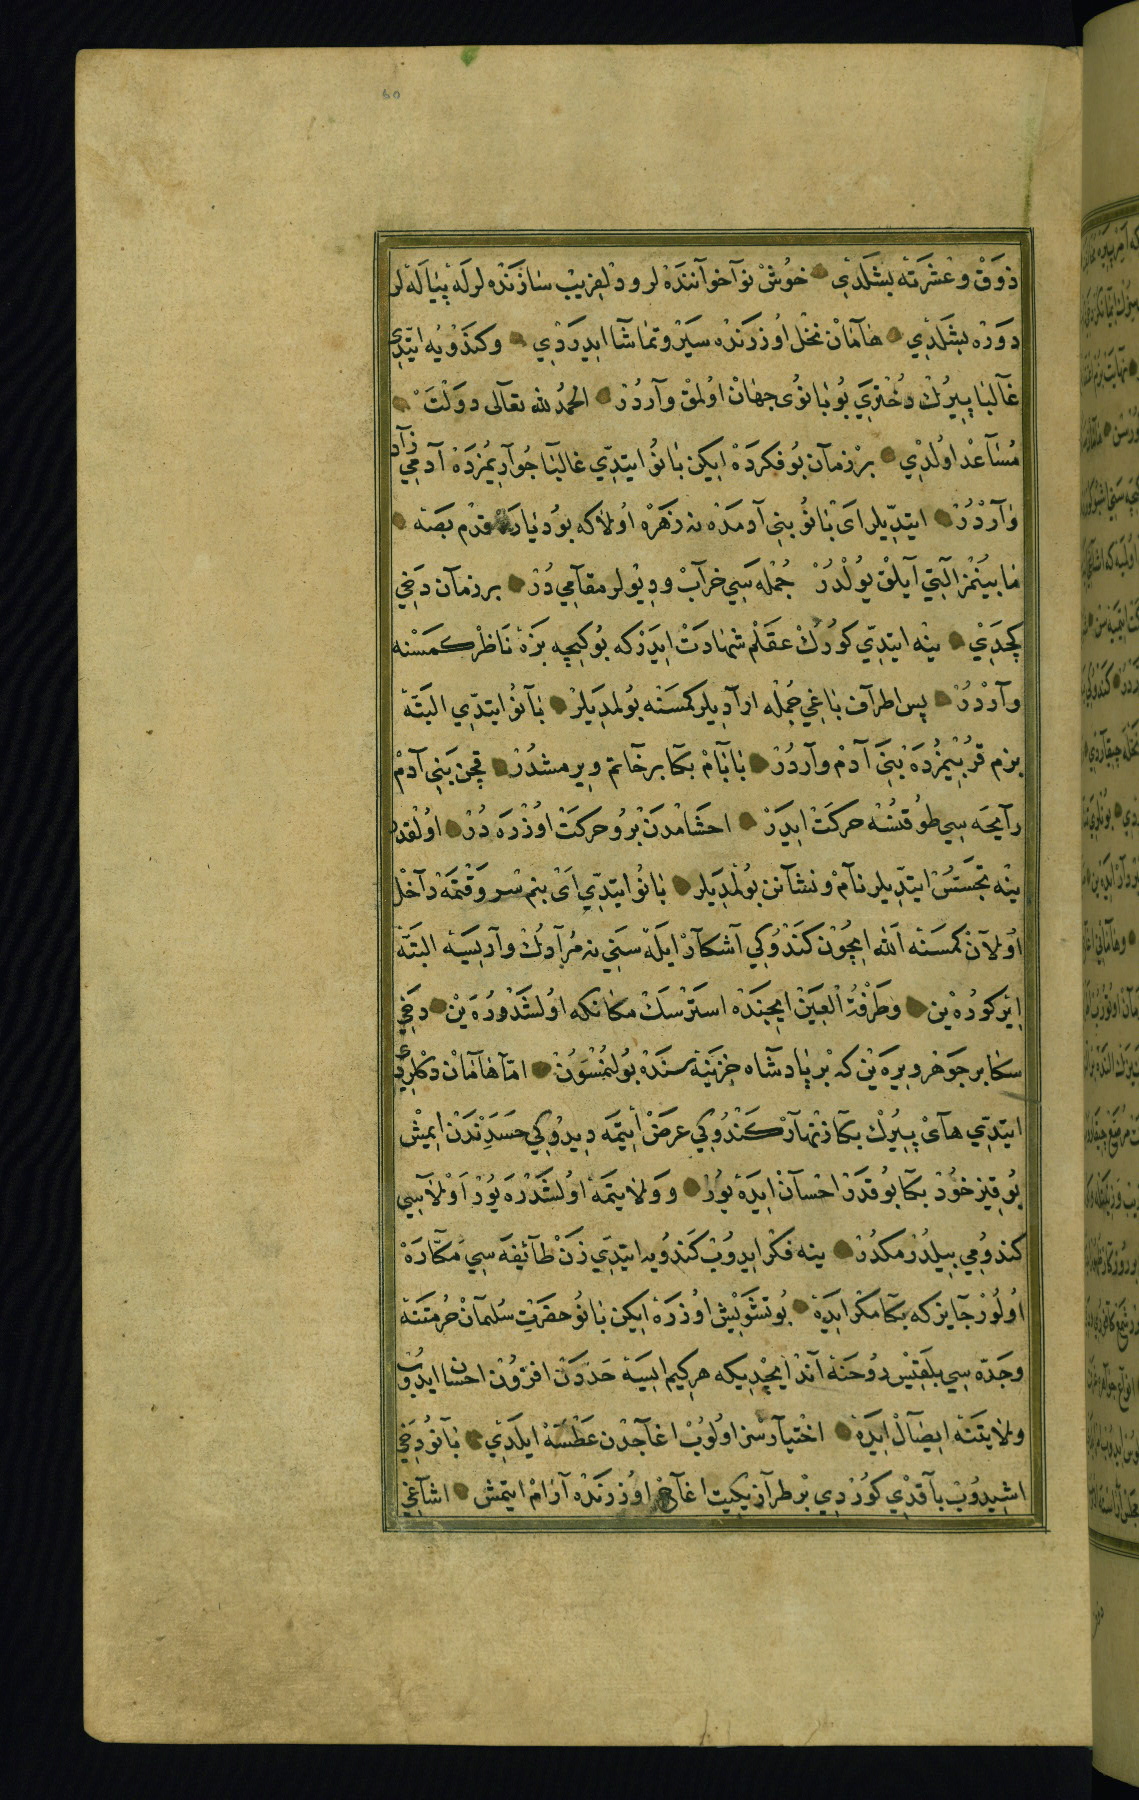 60
ذوق و عشرته بشلدی خوش نوآ خوآننده لر و دلفریب سازنده لر له پیاله لر
دوره بشلدی هامان نخل اوزرنده سیر و تماشا ایدردی وکندویه ایتدی
غالبا پیرک دختری بو بانوی جهان اولمق وآردر الحمد لله تعالی دولت
مساعد اولدی بر زمان بو فکرده ایکن بانو ایتدی غالبا جوآریمزده آدمی زآد
وآردر ایتدیلر ای بانو بنی آدمده نه زهره اولا که بو دیاره قدم بصه
مابینمز التی آیلق یولدر جمله سی خرآب و دیولر مقامی در بر زمان دخی
کچدی ینه ایتدی کورک عقلم شهادت ایدر که بو کیجه بزه ناظر کمسنه
وآردر پس اطراف باغی جمله ارآدیلر کمسنه بولمدیلر بانو ایتدی البته
بزم قربیمزده بنی آدم وآردر بابام بکا بر خاتم ویرمشدر قچن بنی آدم
رآیحه سی طوقنسه حرکت ایدر احشامدن برو حرکت اوزره در اولقدر
ینه تجسس ایتدیلر نام و نشانن بولمدیلر بانو ایتدی ای بنم سر وقتمه داخل
اولان کمسنه الله ایچون کندوکی آشکار ایله سنی نه مرادک وار ایسه البته
ایر کوره ین و طرفة العین ایچنده استرسک مکانکه اولشدوره ین دخی
سکا بر جوهر ویره ین که بر پادشاه خزینه سنده بولنمسون اما هامان دکلردی
ایتدی های پیرک بکا زنهار کندوکی عرض ایتمه دیدوکی حسدندن ایمش
بو قیز خود بکا بو قدر احسان ایده یور و ولایتمه اولشدره یور اولاسی
کندومی بیلدرمکدر ینه فکر ایدوب کندویه ایتدی زن طائفه سی مکاره
اولور جایز که بکا مکر ایده بو تشویش اوزره ایکن بانو حضرت سلیمان حرمتنه
وجده سی بلقیس روحنه آند ایچدیکه هر کیم ایسه حددن افزون احسان ایدوب
ولایتنه ایصال ایده اختیارسز اولوب اغاجدن عطسه ایلدی بانو دخی
اشیدوب باقدی کوردی بر طراز یکیت اغاج اوزرنده آرام ایتمش اشاغی